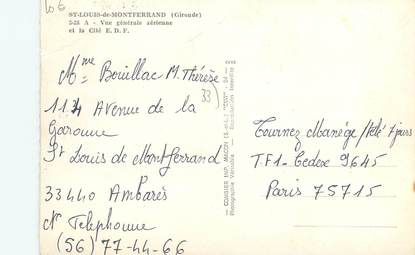 ST-LOUIS-de-MONTFERRAND (Gironde)
5-26 A - Vue générale aérienne
et la Cité E. D. F.
Mme Bouillac M. Thérèse
33)
114 Avenue de la
Garonne
St Louis de Montferrand
33440 Ambarès
N° Telephone
(56) 77-44-66
COMBIER IMP. MACON (S.-et-L.) "CIM"
Photographie Véritable - Reproduction Interdite
Tournez Manége / Télé 7 jours
TF1-Cedex 9645
Paris 75715